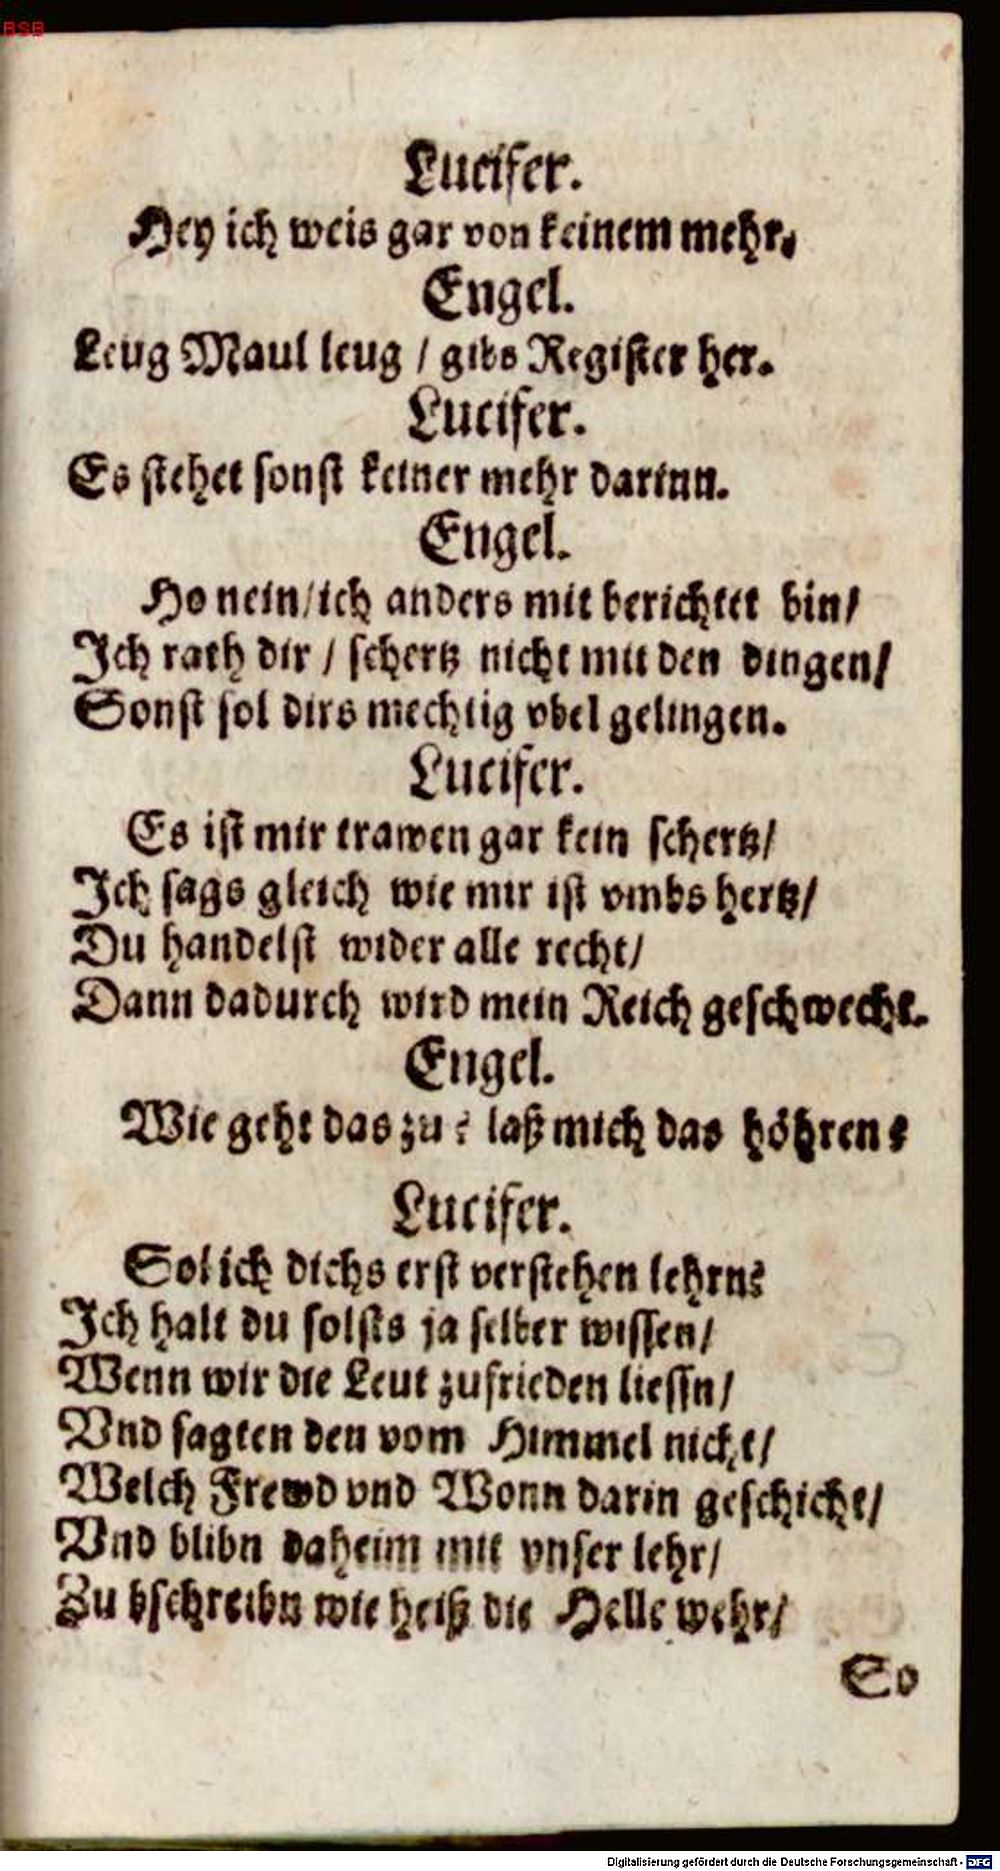 BSB
Lucifer.
Hey ich weis gar von keinem mehr.
Engel.
Leug Maul leug / gibs Register her.
Lucifer.
Es stehet sonst keiner mehr darinn.
Engel.
Ho nein/ich anders mit berichtet bin/
Ich rath dir / schertz nicht mit den dingen/
Sonst sol dirs mechtig vbel gelingen.
Lucifer.
Es ist mir trawen gar kein schertz/
Ich sags gleich wie mir ist vmbs hertz/
Du handelst wider alle recht/
Dann dadurch wird mein Reich geschwecht.
Engel.
Wie geht das zu? laß mich das höhren?
Lucifer.
Sol ich dichs erst verstehen lehrn?
Ich halt du solsts ja selber wissen/
Wenn wir die Leut zufrieden liessn/
Vnd sagten den vom Himmel nicht/
Welch Frewd vnd Wonn darin geschicht/
Vnd blibn daheim mit vnser lehr/
Zu bschreibn wie heiß die Helle wehr/
So
Digitalisierung gefördert durch die Deutsche Forschungsgemeinschaft - DFG